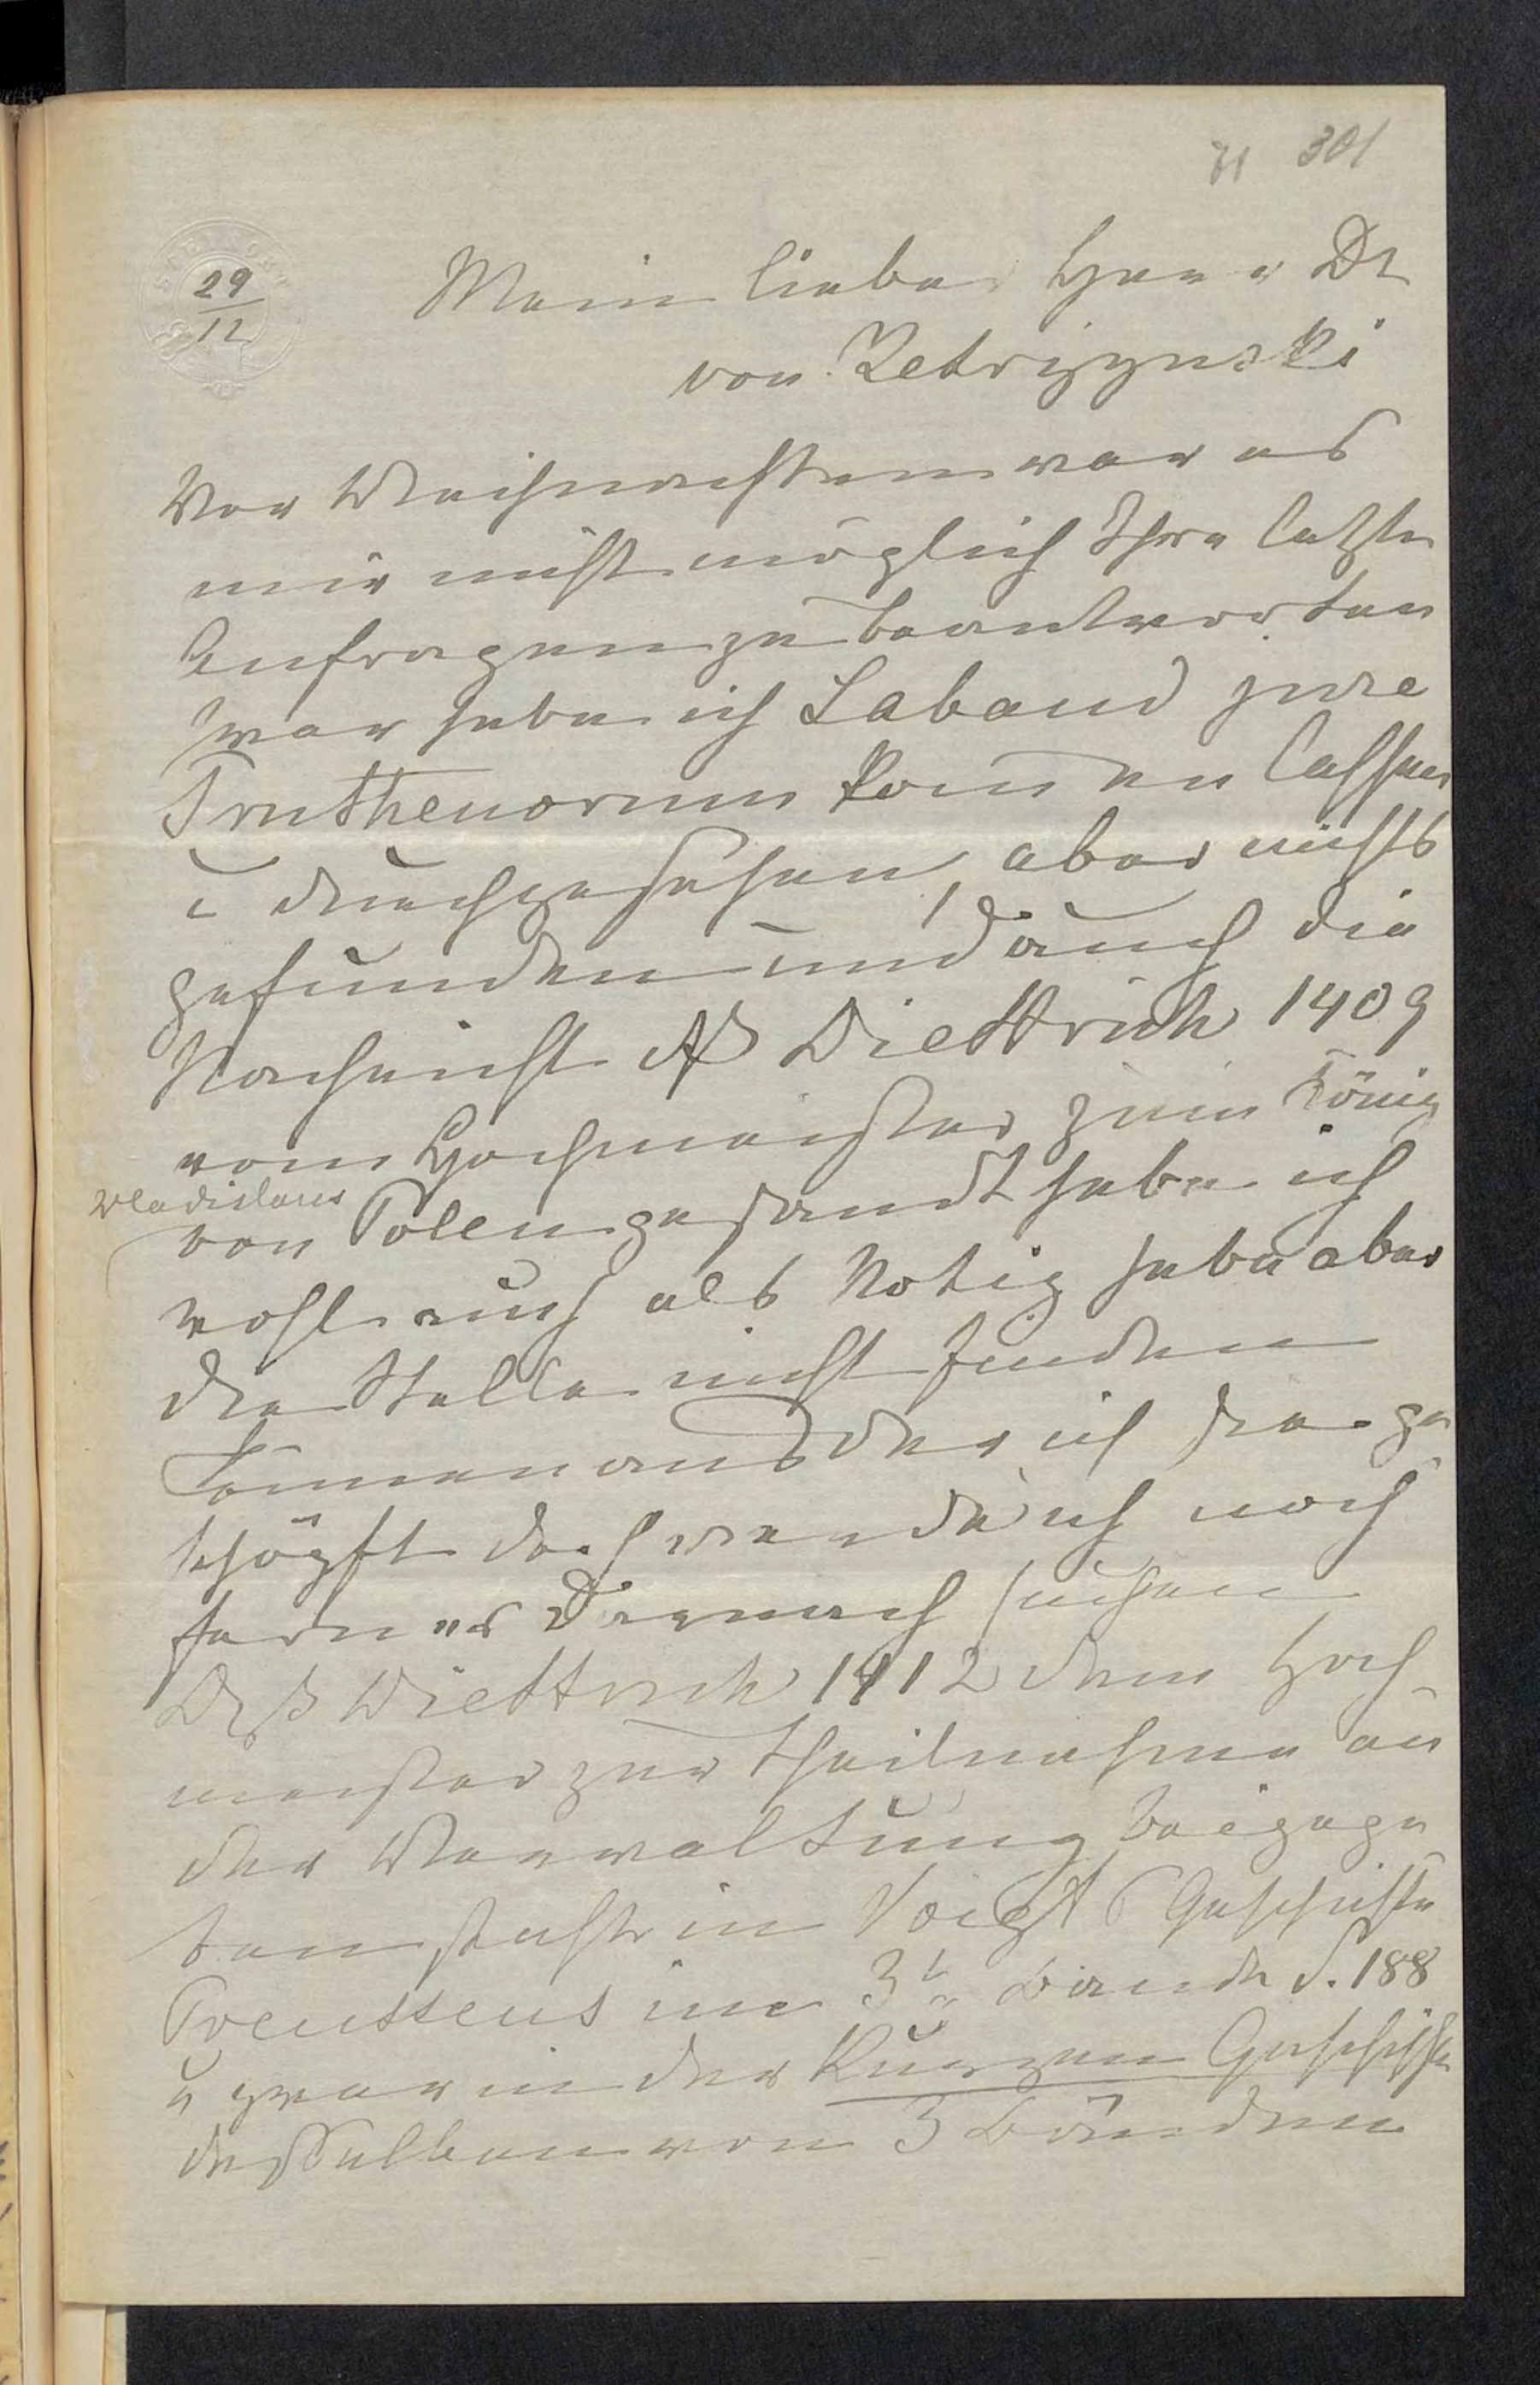 71 301
29
12
Mein lieber Herr Dr
von Ketrizynski
Vor Weihnachten war es
mir nicht möglich Ihre letzten
Anfragen zu beantworten
zwar habe ich Laband jure
Pruthenorum kommen lassen
u durchgesehen, aber nichts
gefunden und auch die
Nachricht Diettrich 1409
vom Hochmeister zum König
Wladislaus
von Polen gesandt habe ich
wohl auch als Notiz habe aber
die Stelle nicht finden
können aus der ich sie ge
schöpft doch werde ich noch
ferner darnach suchen
Diettrich 1412 dem Hoch
meister zur Theilnahme an
der Verwaltung beigege
ben steht in Voigt's Geschichte
Preussens im 3t Bande S. 188
u zwar in der Kurzen Geschichte
desselben von 3 Bänden